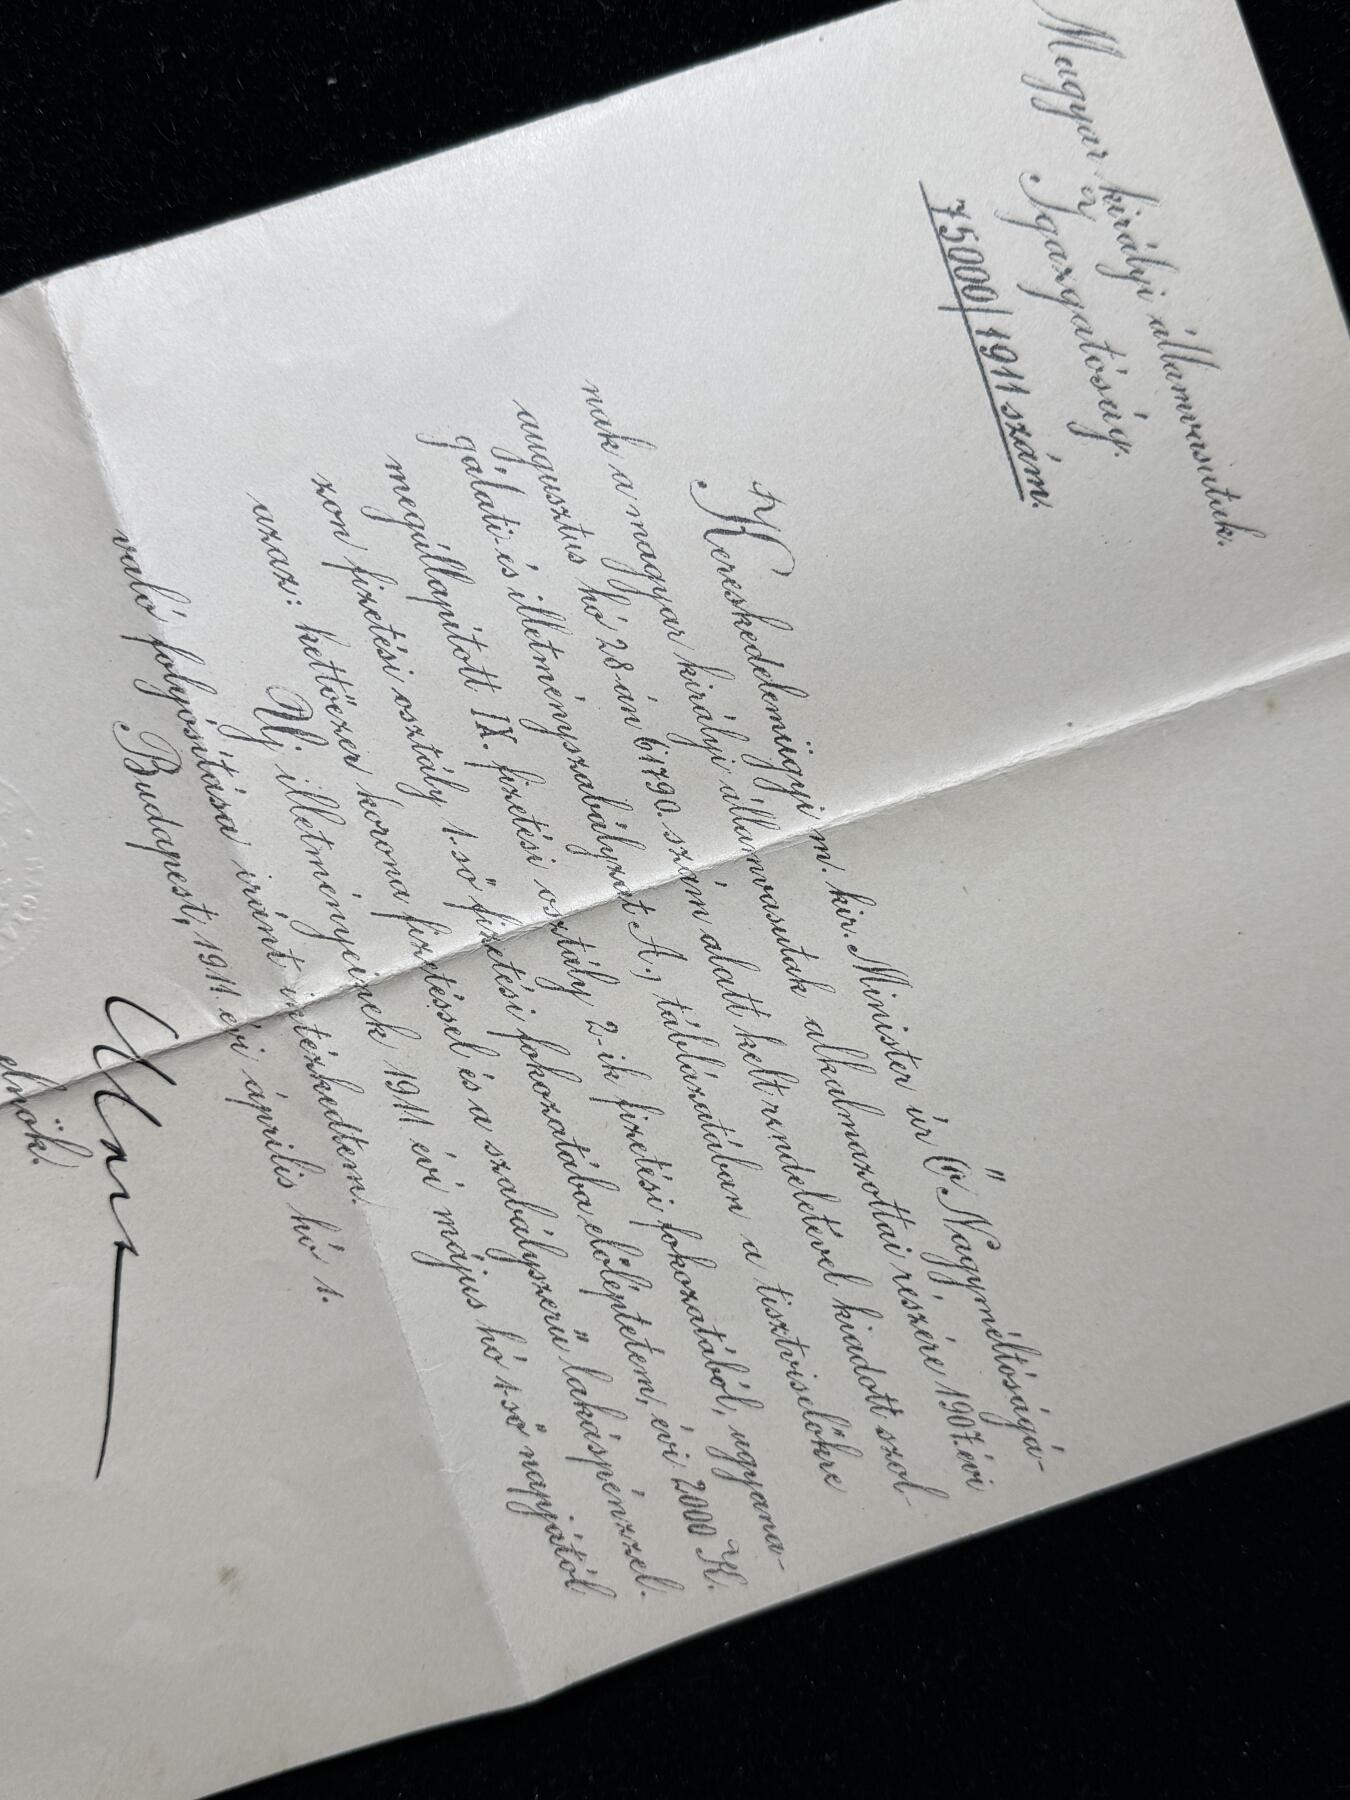 Magyar királyi államvasutak.
Igazgatóság.
75000/1911 szám.
Kereskedelemügyi m. kir. Minister úr Ő Nagyméltóságá-
nak a magyar királyi államvasutak alkalmazottai részére 1907. évi
augusztus hó 28-án 61790. szám alatt kelt rendeletével kiadott szol-
gálati- és illetményszabályzat A., táblázatában a tisztviselőkre
megállapított IX. fizetési osztály 2-ik fizetési fokozatából, ugyana-
zon fizetési osztály 1.-ső fizetési fokozatába előléptetem, évi 2000 K.
azaz: kettőezer korona fizetéssel és a szabályszerű lakáspénzzel.
Uj illetményeinek 1911. évi május hó 1-ső napjától
való folyósítása iránt intézkedtem.
Budapest, 1911. évi április hó 1.
elnök.